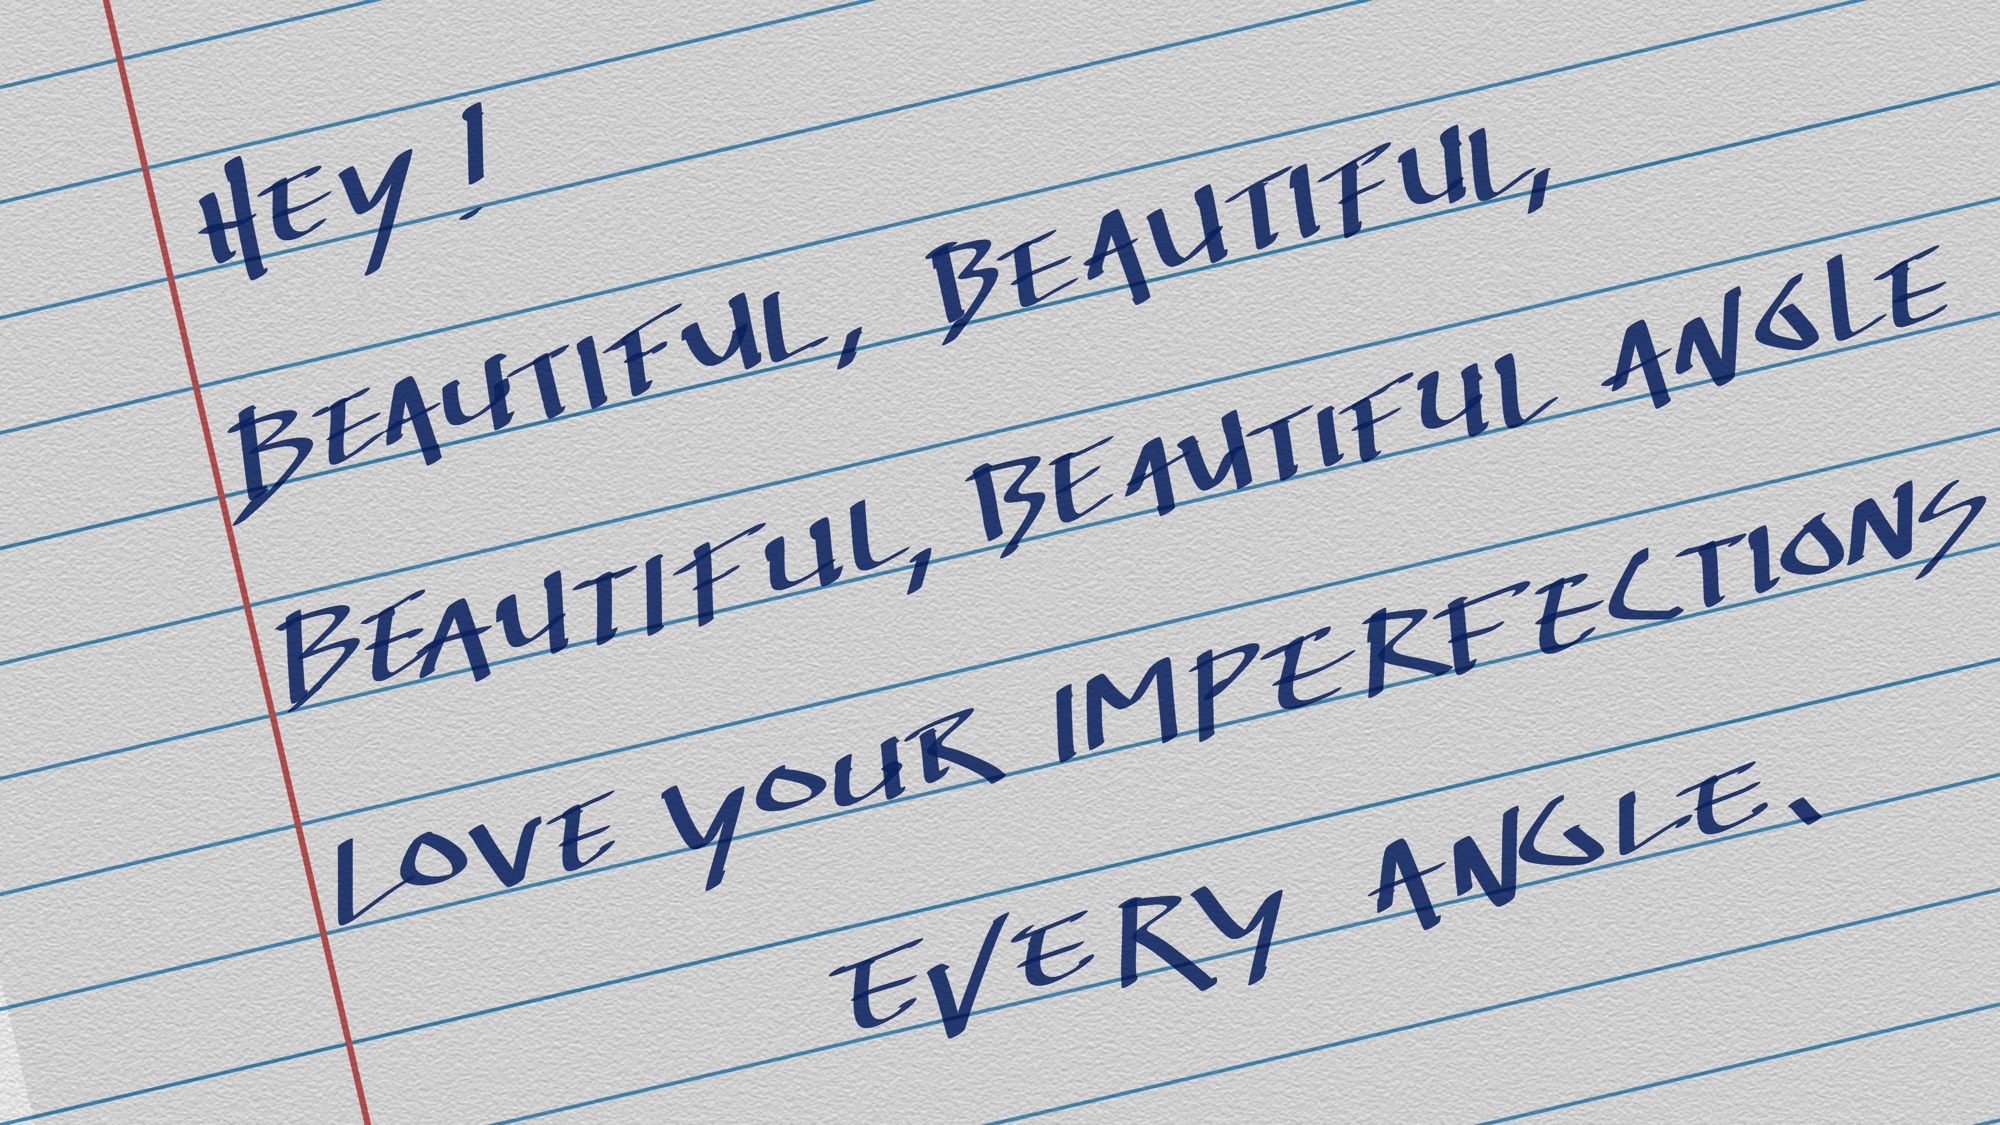 HEY !
BEAUTIFUL, BEAUTIFUL,
BEAUTIFUL, BEAUTIFUL ANGLE
LOVE YOUR IMPERFECTIONS
EVERY ANGLE.